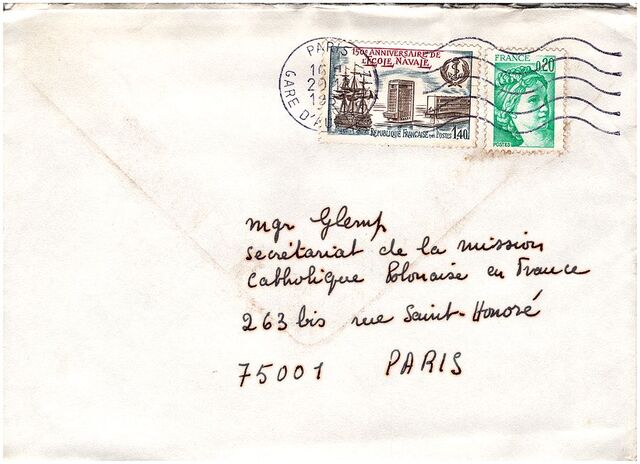 PARIS
GARE D'AU
150e ANNIVERSAIRE DE
L'ÉCOLE NAVALE
RÉPUBLIQUE FRANÇAISE POSTES
1,40
FRANCE
0,20
POSTES
mgr Glemp
secrétariat de la mission
Catholique Polonaise en France
263 bis rue Saint-Honoré
75001 PARIS